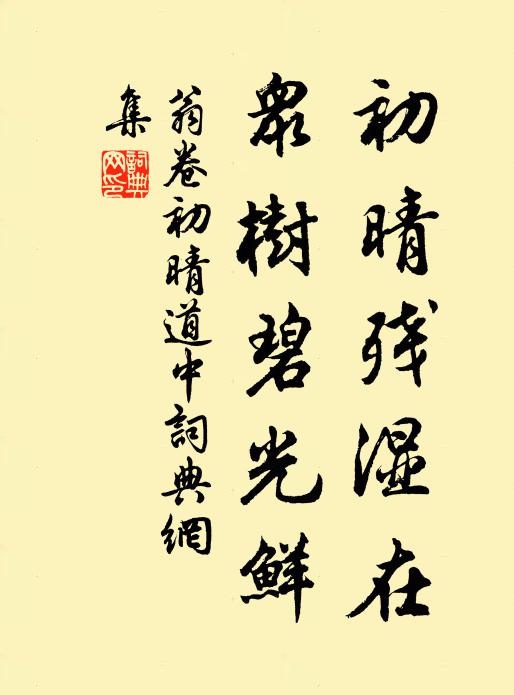 初晴残湿在
衆樹碧光鮮
翁卷初晴道中詞典網
集
詞典
网印